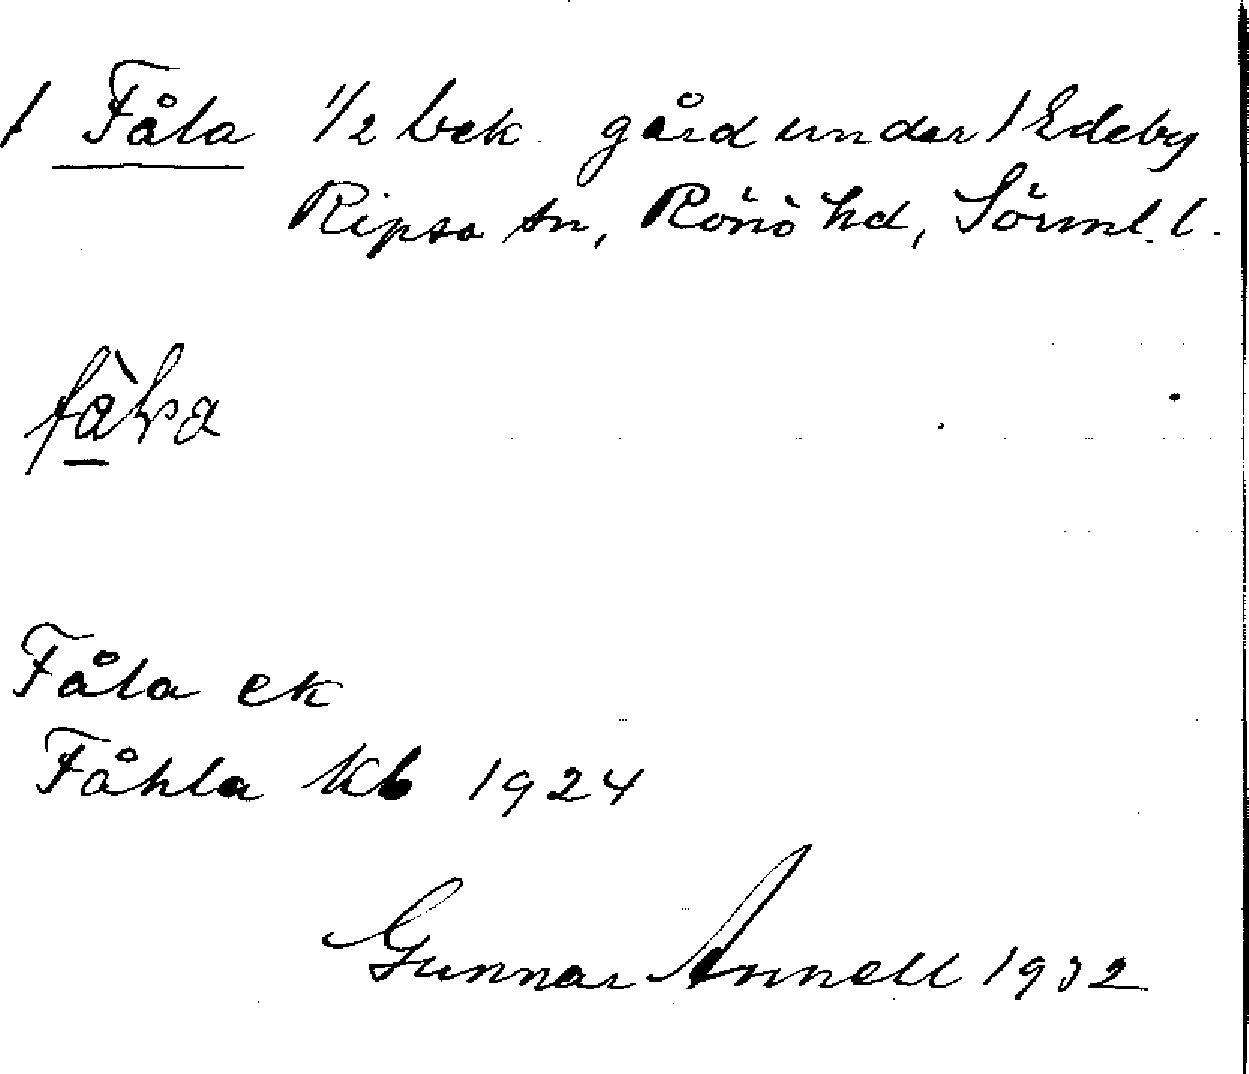 / Fåla 1/2 bek. gård under / Edeby
Ripsa sn, Rönö hd, Sörml. l.
Fåla ek
Fåhla kb 1924
Gunnar Annell 1932